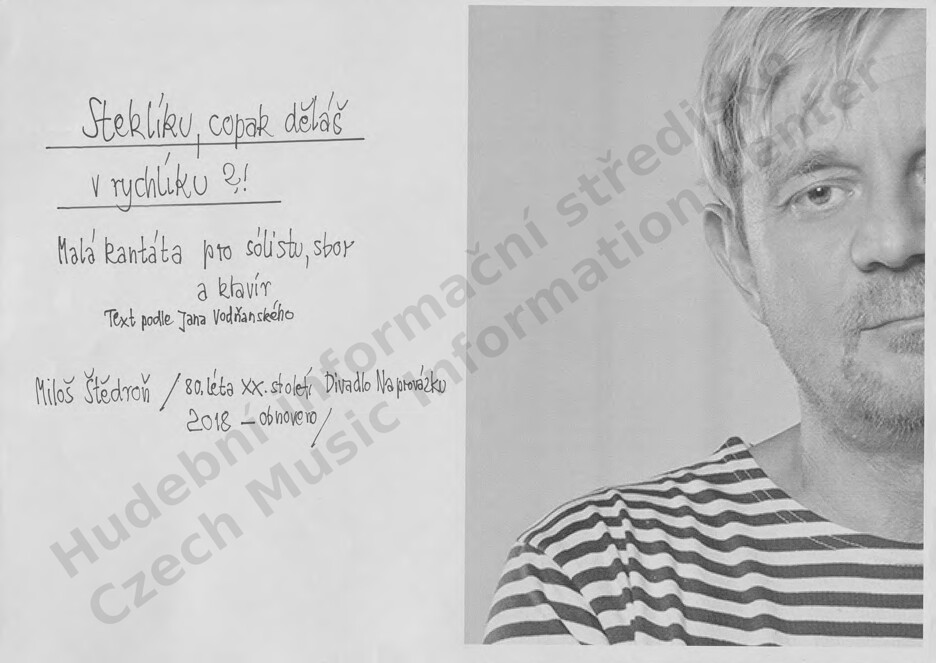 Steklíku, copak děláš
v rychlíku ?!
Malá kantáta pro sólistu, sbor
a klavír
Text podle Jana Vodňanského
Miloš Štědroň / 80. léta XX. století Divadlo Na provázku
2018 – obnoveno /
Hudební informační středisko
Czech Music Information Center